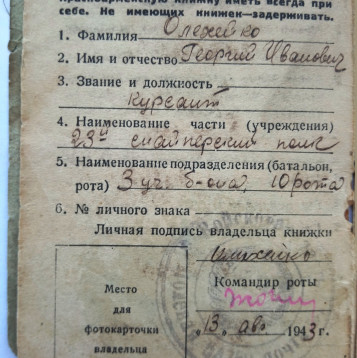 Красноармейскую книжку иметь всегда при
себе. Не имеющих книжек—задерживать.
1. Фамилия Олехейко
2. Имя и отчество Георгий Иванович
3. Звание и должность
Курсант
4. Наименование части (учреждения)
23й снайперский полк
5. Наименование подразделения (батальон,
рота) 3 уч. б-она, 10 рота
6. № личного знака
Личная подпись владельца книжки
Командир роты
Место
для
фотокарточки
владельца
"13" авг 1943г.